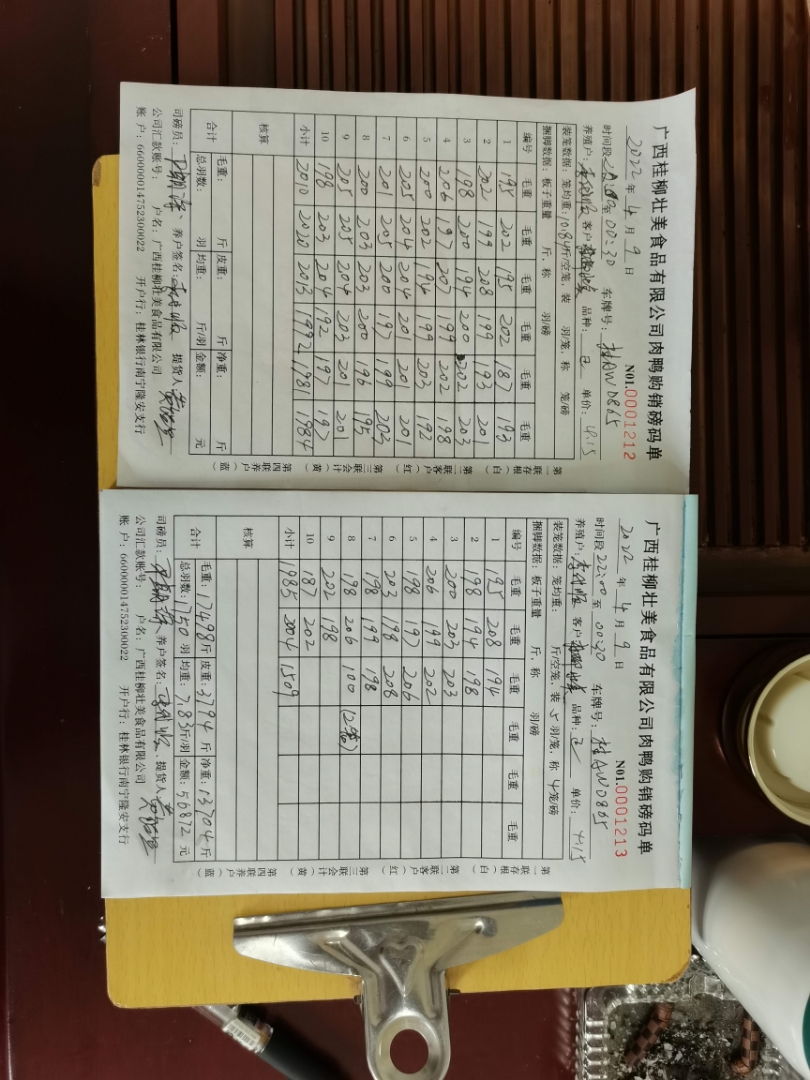 广西桂柳壮美食品有限公司肉鸭购销磅码单
NO1.0001212
2022 年 4 月 9 日
时间段 至 00:30 车牌号: 桂AW0865
养殖户: 客户: 品种: 单价: 4.15
装笼数据: 笼均重: 10.84 斤/空笼, 装 羽/笼, 称 笼/磅
捆脚数据: 板子重量 斤, 称 羽/磅
编号 毛重 毛重 毛重 毛重 毛重 毛重
1 195 202 195 202 187 193
2 202 199 208 199 193 201
3 198 200 194 200 202 203
4 206 197 207 199 202 198
5 200 202 194 199 203 192
6 205 204 204 201 201 201
7 201 205 200 197 199 203
8 200 203 203 200 196 195
9 205 205 204 203 201 201
10 198 203 204 192 197 197
小计 2010 2020 2013 1992 1981 1984
核算
合计 毛重: 斤 皮重: 斤 净重: 斤
总羽数: 羽 均重: 斤/羽 金额: 元
司磅员: 养户签名: 提货人:
公司汇款账号: 户名: 广西桂柳壮美食品有限公司
账户: 660000014752300022 开户行: 桂林银行南宁隆安支行
第一联存根(白) 第二联客户(红) 第三联会计(黄) 第四联养户(蓝)
广西桂柳壮美食品有限公司肉鸭购销磅码单
NO1.0001213
2022 年 4 月 9 日
时间段 22:00 至 00:30 车牌号: 桂AW0865
养殖户: 客户: 品种: 单价: 4.15
装笼数据: 笼均重: 斤/空笼, 装 5 羽/笼, 称 4 笼/磅
捆脚数据: 板子重量 斤, 称 羽/磅
编号 毛重 毛重 毛重 毛重 毛重 毛重
1 195 208 194
2 198 194 198
3 200 203 203
4 206 199 202
5 198 197 206
6 203 198 208
7 198 199 198
8 198 206 100 (2笼)
9 202 198
10 187 202
小计 1985 2004 1509
核算
合计 毛重: 17498 斤 皮重: 3794 斤 净重: 13704 斤
总羽数: 1750 羽 均重: 7.83 斤/羽 金额: 56872 元
司磅员: 养户签名: 提货人:
公司汇款账号: 户名: 广西桂柳壮美食品有限公司
账户: 660000014752300022 开户行: 桂林银行南宁隆安支行
第一联存根(白) 第二联客户(红) 第三联会计(黄) 第四联养户(蓝)